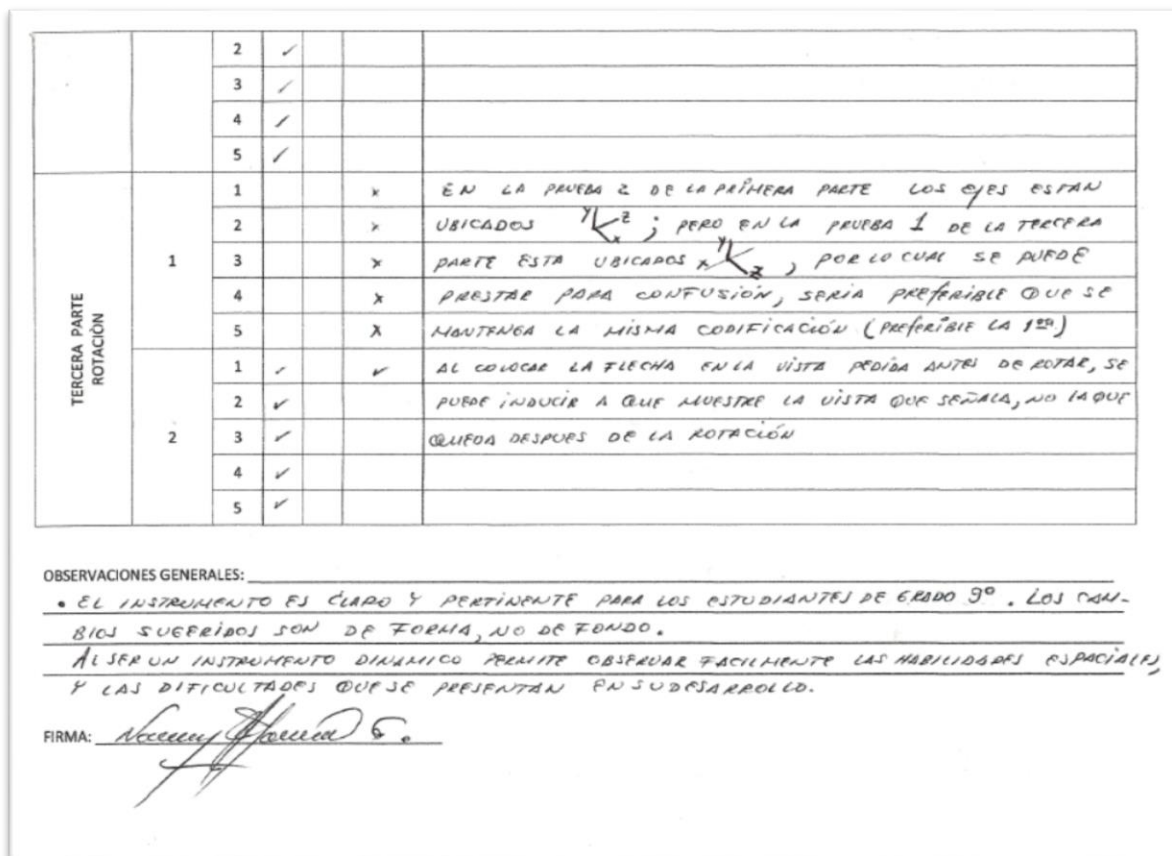 2 ✓
3 ✓
4 ✓
5 ✓
TERCERA PARTE
ROTACIÓN
1
1 x EN LA PRUEBA 2 DE LA PRIMERA PARTE LOS EJES ESTAN
2 x UBICADOS Y Z X ; PERO EN LA PRUEBA 1 DE LA TERCERA
3 x PARTE ESTA UBICADOS X Y Z , POR LO CUAL SE PUEDE
4 x PRESTAR PARA CONFUSIÓN, SERIA PREFERIBLE QUE SE
5 x MANTENGA LA MISMA CODIFICACIÓN (PREFERIBLE LA 1era)
2
1 ✓ ✓ AL COLOCAR LA FLECHA EN LA VISTA PEDIDA ANTES DE ROTAR, SE
2 ✓ PUEDE INDUCIR A QUE MUESTRE LA VISTA QUE SEÑALA, NO LA QUE
3 ✓ QUEDA DESPUES DE LA ROTACIÓN
4 ✓
5 ✓
OBSERVACIONES GENERALES:
• EL INSTRUMENTO ES CLARO Y PERTINENTE PARA LOS ESTUDIANTES DE GRADO 9º. LOS CAM-
BIOS SUGERIDOS SON DE FORMA, NO DE FONDO.
AL SER UN INSTRUMENTO DINAMICO PERMITE OBSERVAR FACILMENTE LAS HABILIDADES ESPACIALES,
Y LAS DIFICULTADES QUE SE PRESENTAN EN SU DESARROLLO.
FIRMA: